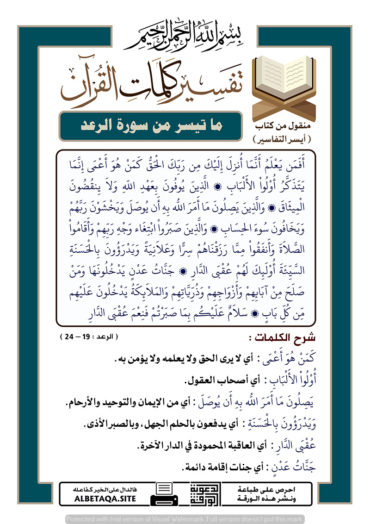 بسم الله الرحمن الرحيم
تفسير كلمات القرآن
منقول من كتاب
( أيسر التفاسير )
ما تيسر من سورة الرعد
أَفَمَن يَعْلَمُ أَنَّمَا أُنزِلَ إِلَيْكَ مِن رَبِّكَ الْحَقُّ كَمَنْ هُوَ أَعْمَى إِنَّمَا
يَتَذَكَّرُ أُوْلُواْ الأَلْبَابِ ۞ الَّذِينَ يُوفُونَ بِعَهْدِ اللهِ وَلاَ يِنقُضُونَ
الْمِيثَاقَ ۞ وَالَّذِينَ يَصِلُونَ مَا أَمَرَ اللهُ بِهِ أَن يُوصَلَ وَيَخْشَوْنَ رَبَّهُمْ
وَيَخَافُونَ سُوءَ الحِسَابِ ۞ وَالَّذِينَ صَبَرُواْ ابْتِغَاء وَجْهِ رَبِّهِمْ وَأَقَامُواْ
الصَّلاَةَ وَأَنفَقُواْ مِمَّا رَزَقْنَاهُمْ سِرًّا وَعَلاَنِيَةً وَيَدْرَؤُونَ بِالْحَسَنَةِ
السَّيِّئَةَ أُوْلَئِكَ لَهُمْ عُقْبَى الدَّارِ ۞ جَنَّاتُ عَدْنٍ يَدْخُلُونَهَا وَمَنْ
صَلَحَ مِنْ آبَائِهِمْ وَأَزْوَاجِهِمْ وَذُرِّيَّاتِهِمْ وَالمَلاَئِكَةُ يَدْخُلُونَ عَلَيْهِم
مِن كُلِّ بَابٍ ۞ سَلاَمٌ عَلَيْكُم بِمَا صَبَرْتُمْ فَنِعْمَ عُقْبَى الدَّارِ
شرح الكلمات : ( الرعد : 19 – 24 )
كَمَنْ هُوَ أَعْمَى : أي لا يرى الحق ولا يعلمه ولا يؤمن به .
أُوْلُواْ الأَلْبَابِ : أي أصحاب العقول .
يَصِلُونَ مَا أَمَرَ الله بِهِ أَن يُوصَلَ : أي من الإيمان والتوحيد والأرحام .
وَيَدْرَؤُونَ بِالْحَسَنَةِ : أي يدفعون بالحلم الجهل ، وبالصبر الأذى .
عُقْبَى الدَّارِ : أي العاقبة المحمودة في الدار الآخرة .
جَنَّاتُ عَدْنٍ : أي جنات إقامة دائمة .
احرص على طباعة
ونشر هذه الورقة
الدعوية
الورقة
فالدال على الخير كفاعله
ALBETAQA.SITE